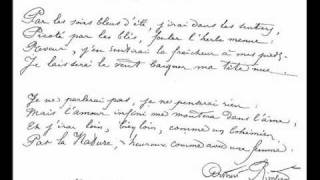 Par les soirs bleus d'été, j'irai dans les sentiers,
Picoté par les blés, fouler l'herbe menue :
Rêveur, j'en sentirai la fraîcheur à mes pieds.
Je laisserai le vent baigner ma tête nue.
Je ne parlerai pas, je ne penserai rien :
Mais l'amour infini me montera dans l'âme,
Et j'irai loin, bien loin, comme un bohémien
Par la Nature, - heureux comme avec une femme.
Arthur Rimbaud